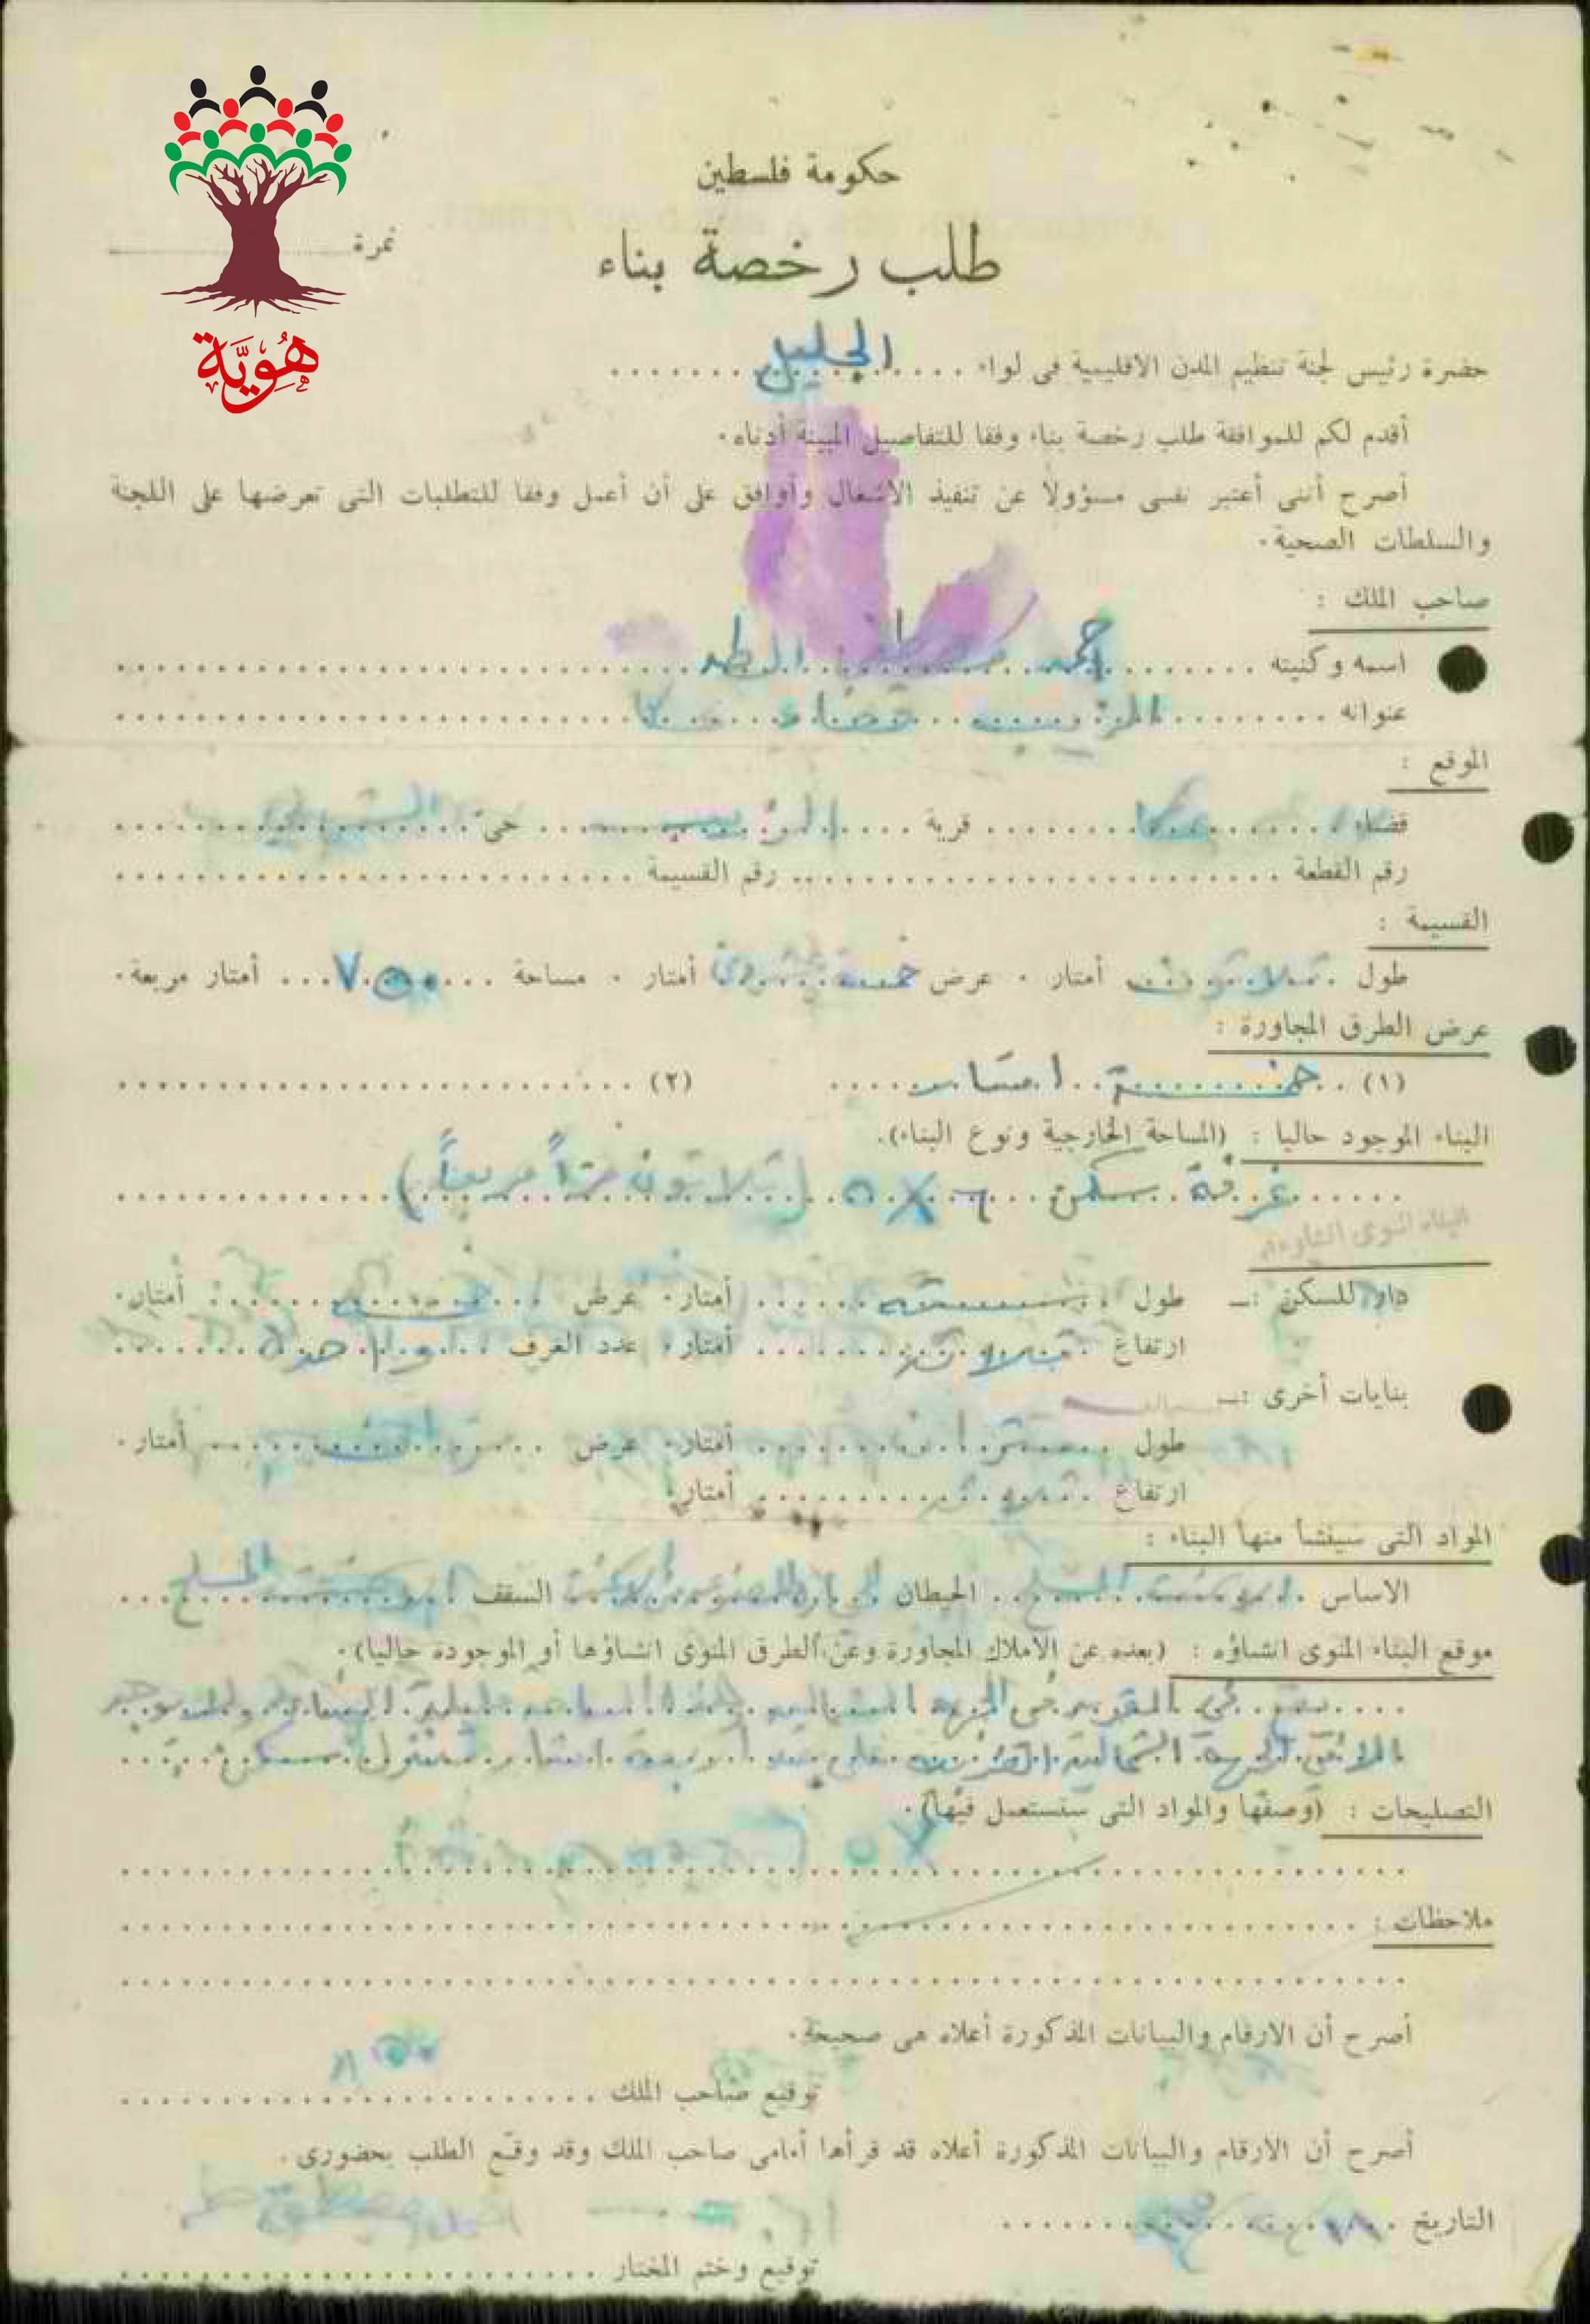 هُوِيَّة
حكومة فلسطين
نمرة
طلب رخصة بناء
حضرة رئيس لجنة تنظيم المدن الاقليمية فى لواء الجليل
أقدم لكم للموافقة طلب رخصة بناء وفقا للتفاصيل المبينة أدناه.
أصرح أننى أعتبر نفسى مسؤولا عن تنفيذ الاشغال وأوافق على أن أعمل وفقا للمتطلبات التى تعرضها على اللجنة
والسلطات الصحية.
صاحب الملك :
اسمه وكنيته احمد مصطفى
عنوانه الزيب قضاء عكا
الموقع :
قضاء عكا قرية الزيب حى
رقم القطعة رقم القسيمة
القسيمة :
طول ثلاثون أمتار . عرض خمسة وعشرون أمتار . مساحة ٧٥٠ أمتار مربعة.
عرض الطرق المجاورة :
(١) خمسة امتار (٢)
البناء الموجود حاليا : (المساحة الخارجية ونوع البناء).
غرفة سكن ٦ X ٥ (ثلاثون متراً مربعاً)
البناء المنوى انشاؤه
دار للسكن :— طول ستة أمتار. عرض خمسة أمتار.
ارتفاع ثلاثة أمتار. عدد الغرف واحدة
بنايات أخرى :—
طول أمتار. عرض أمتار.
ارتفاع أمتار.
المواد التى سينشأ منها البناء :
الاساس المسلح الحيطان السقف المسلح
موقع البناء المنوى انشاؤه : (بعده عن الاملاك المجاورة وعن الطرق المنوى انشاؤها أو الموجودة حاليا).
الجهة الشمالية
التصليحات : (وصفها والمواد التى ستستعمل فيها).
ملاحظات :
أصرح أن الارقام والبيانات المذكورة أعلاه هى صحيحة.
توقيع صاحب الملك
أصرح أن الارقام والبيانات المذكورة أعلاه قد قرأها أمامى صاحب الملك وقد وقّع الطلب بحضورى.
التاريخ
توقيع وختم المختار